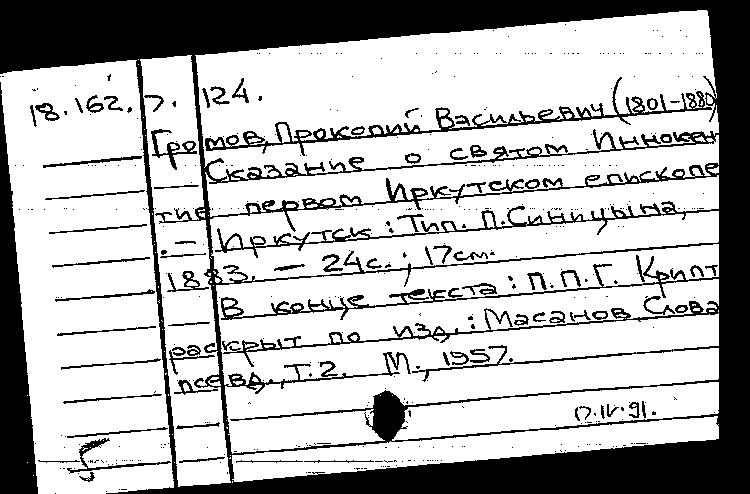 18.162.7.124.
Громов, Прокопий Васильевич (1801-1880)
Сказание о святом Иннокен
тие первом Иркутском епископе
.– Иркутск : Тип. П. Синицына,
1883. – 24с. ; 17см.
В конце текста : П.П.Г. Крипт
раскрыт по изд. : Масанов, Слова
псевд., Т.2. М., 1957.
17.IV.91.